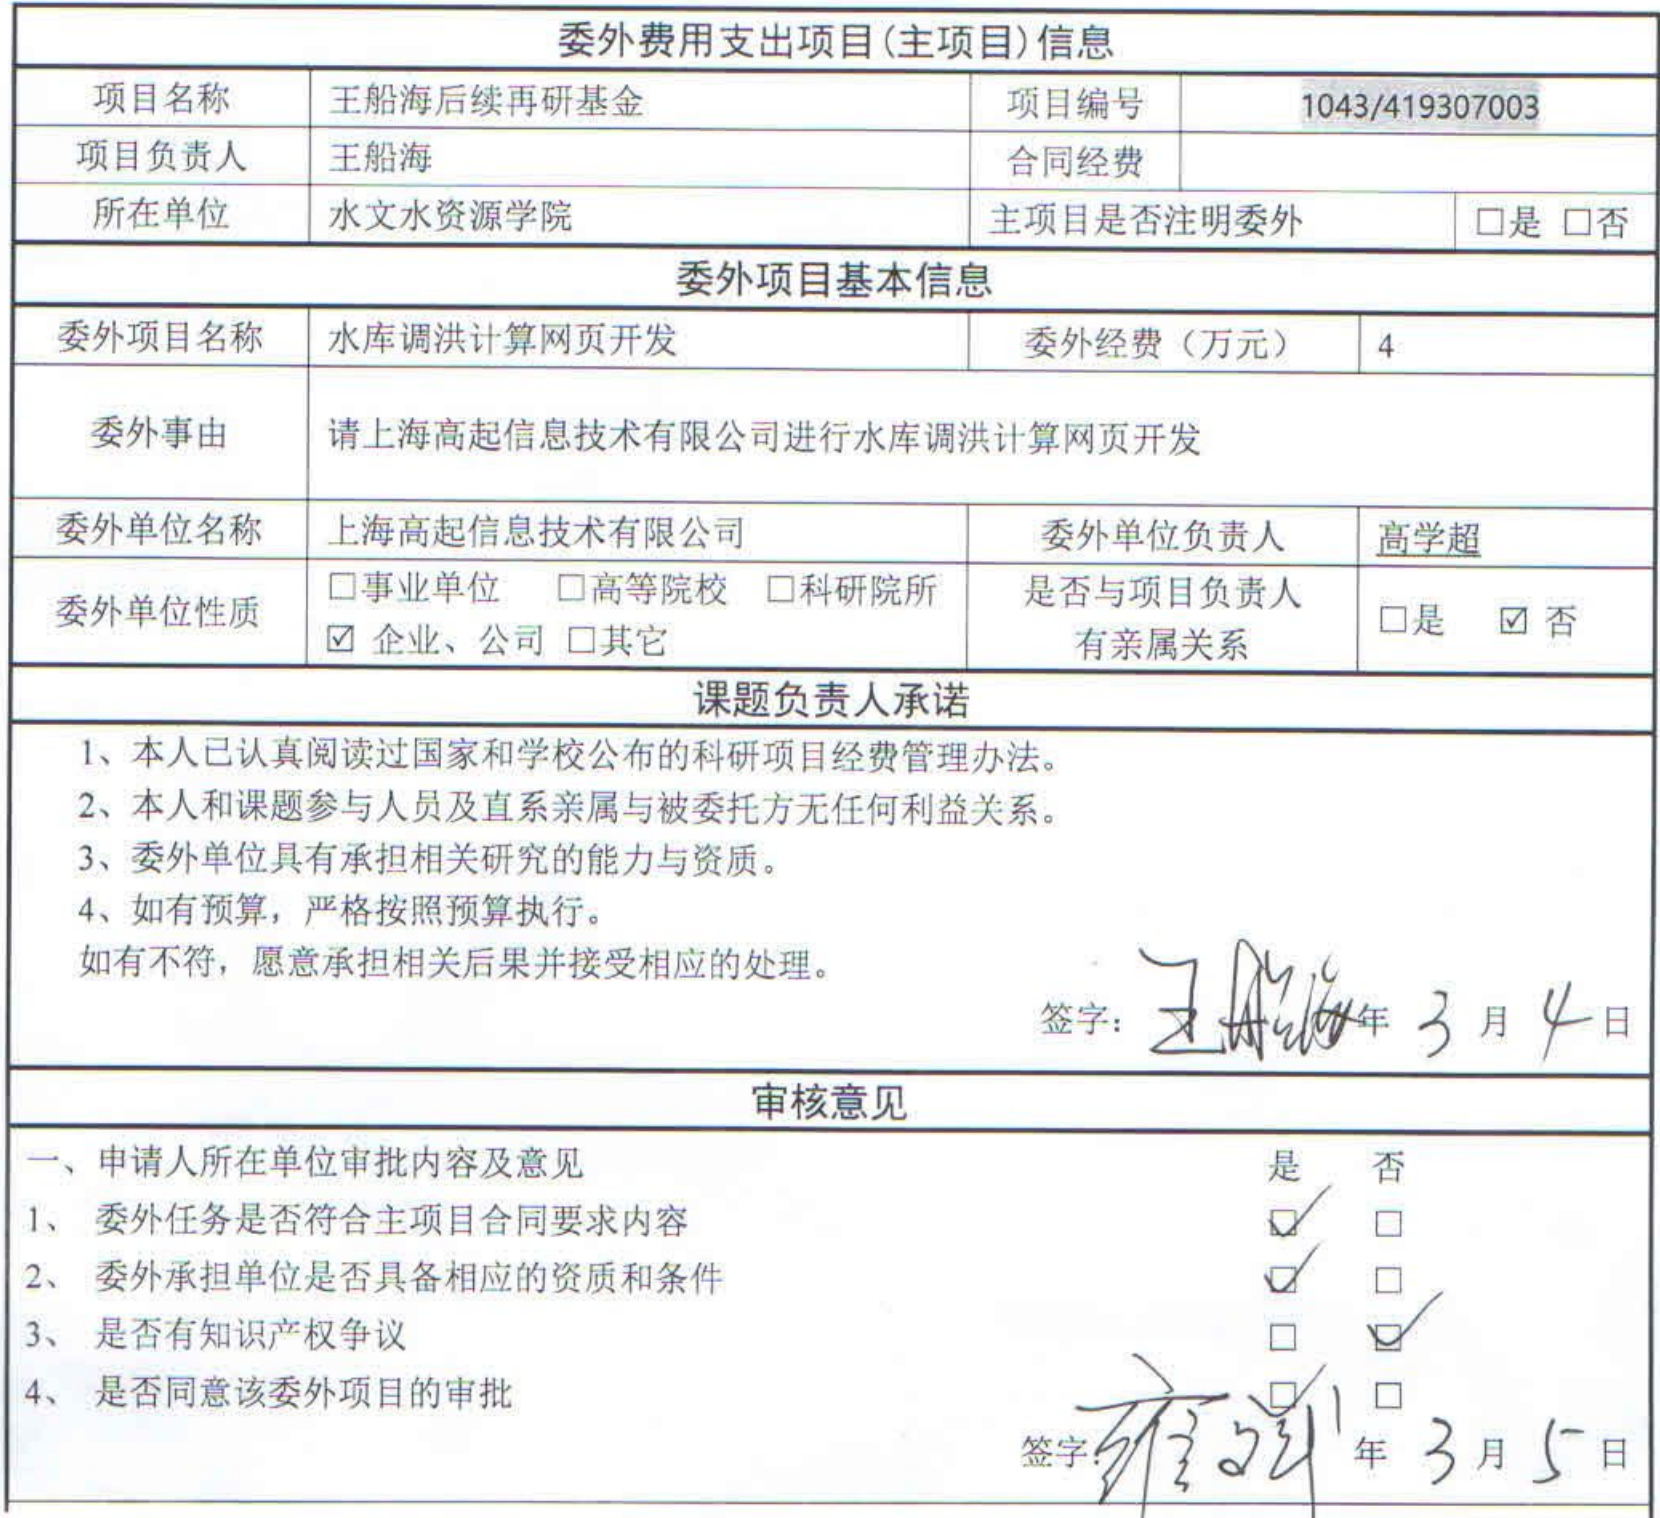 委外费用支出项目(主项目)信息
项目名称 王船海后续再研基金 项目编号 1043/419307003
项目负责人 王船海 合同经费
所在单位 水文水资源学院 主项目是否注明委外 □是 □否
委外项目基本信息
委外项目名称 水库调洪计算网页开发 委外经费（万元） 4
委外事由 请上海高起信息技术有限公司进行水库调洪计算网页开发
委外单位名称 上海高起信息技术有限公司 委外单位负责人 高学超
委外单位性质 □事业单位 □高等院校 □科研院所 是否与项目负责人 □是 ☑ 否
☑ 企业、公司 □其它 有亲属关系
课题负责人承诺
1、本人已认真阅读过国家和学校公布的科研项目经费管理办法。
2、本人和课题参与人员及直系亲属与被委托方无任何利益关系。
3、委外单位具有承担相关研究的能力与资质。
4、如有预算，严格按照预算执行。
如有不符，愿意承担相关后果并接受相应的处理。
签字： 王船海 年 3 月 4 日
审核意见
一、申请人所在单位审批内容及意见 是 否
1、 委外任务是否符合主项目合同要求内容 ☑ □
2、 委外承担单位是否具备相应的资质和条件 ☑ □
3、 是否有知识产权争议 □ ☑
4、 是否同意该委外项目的审批 ☑ □
签字： 年 3 月 5 日